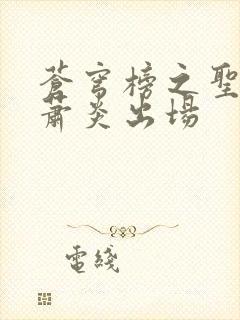 蒼穹榜之聖
蕭炎出場
電綫